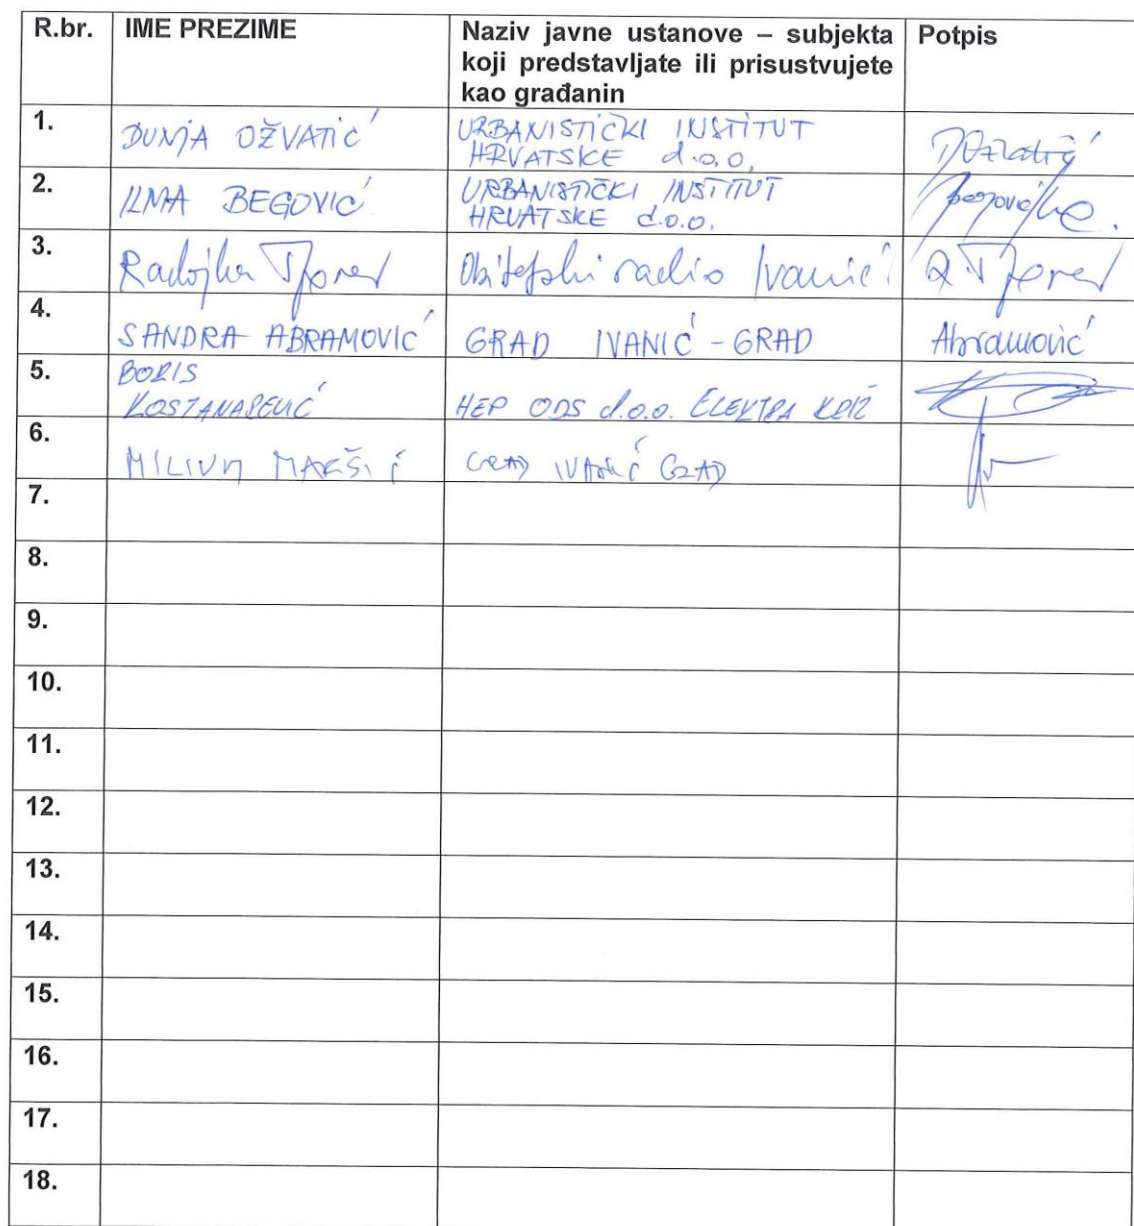 R.br. IME PREZIME Naziv javne ustanove – subjekta Potpis
koji predstavljate ili prisustvujete
kao građanin
1. DUNJA OŽVATIĆ URBANISTIČKI INSTITUT
HRVATSKE d.o.o.
2. ILMA BEGOVIĆ URBANISTIČKI INSTITUT
HRVATSKE d.o.o.
3. Radojka Obiteljski radio Ivanić
4. SANDRA ABRAMOVIĆ GRAD IVANIĆ - GRAD Abramović
5. BORIS
KOSTANAŠEVIĆ HEP ODS d.o.o. ELEKTRA KRIŽ
6. GRAD IVANIĆ GRAD
7.
8.
9.
10.
11.
12.
13.
14.
15.
16.
17.
18.